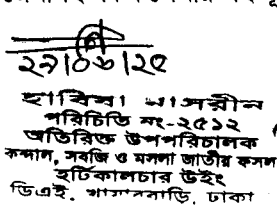 ২৯|০৬|২৫
হাবিবা নাসরীন
পরিচিতি নং-২৫১২
অতিরিক্ত উপপরিচালক
কন্দাল, সবজি ও মসলা জাতীয় ফসল
হর্টিকালচার উইং
ডিএই, খামারবাড়ি, ঢাকা